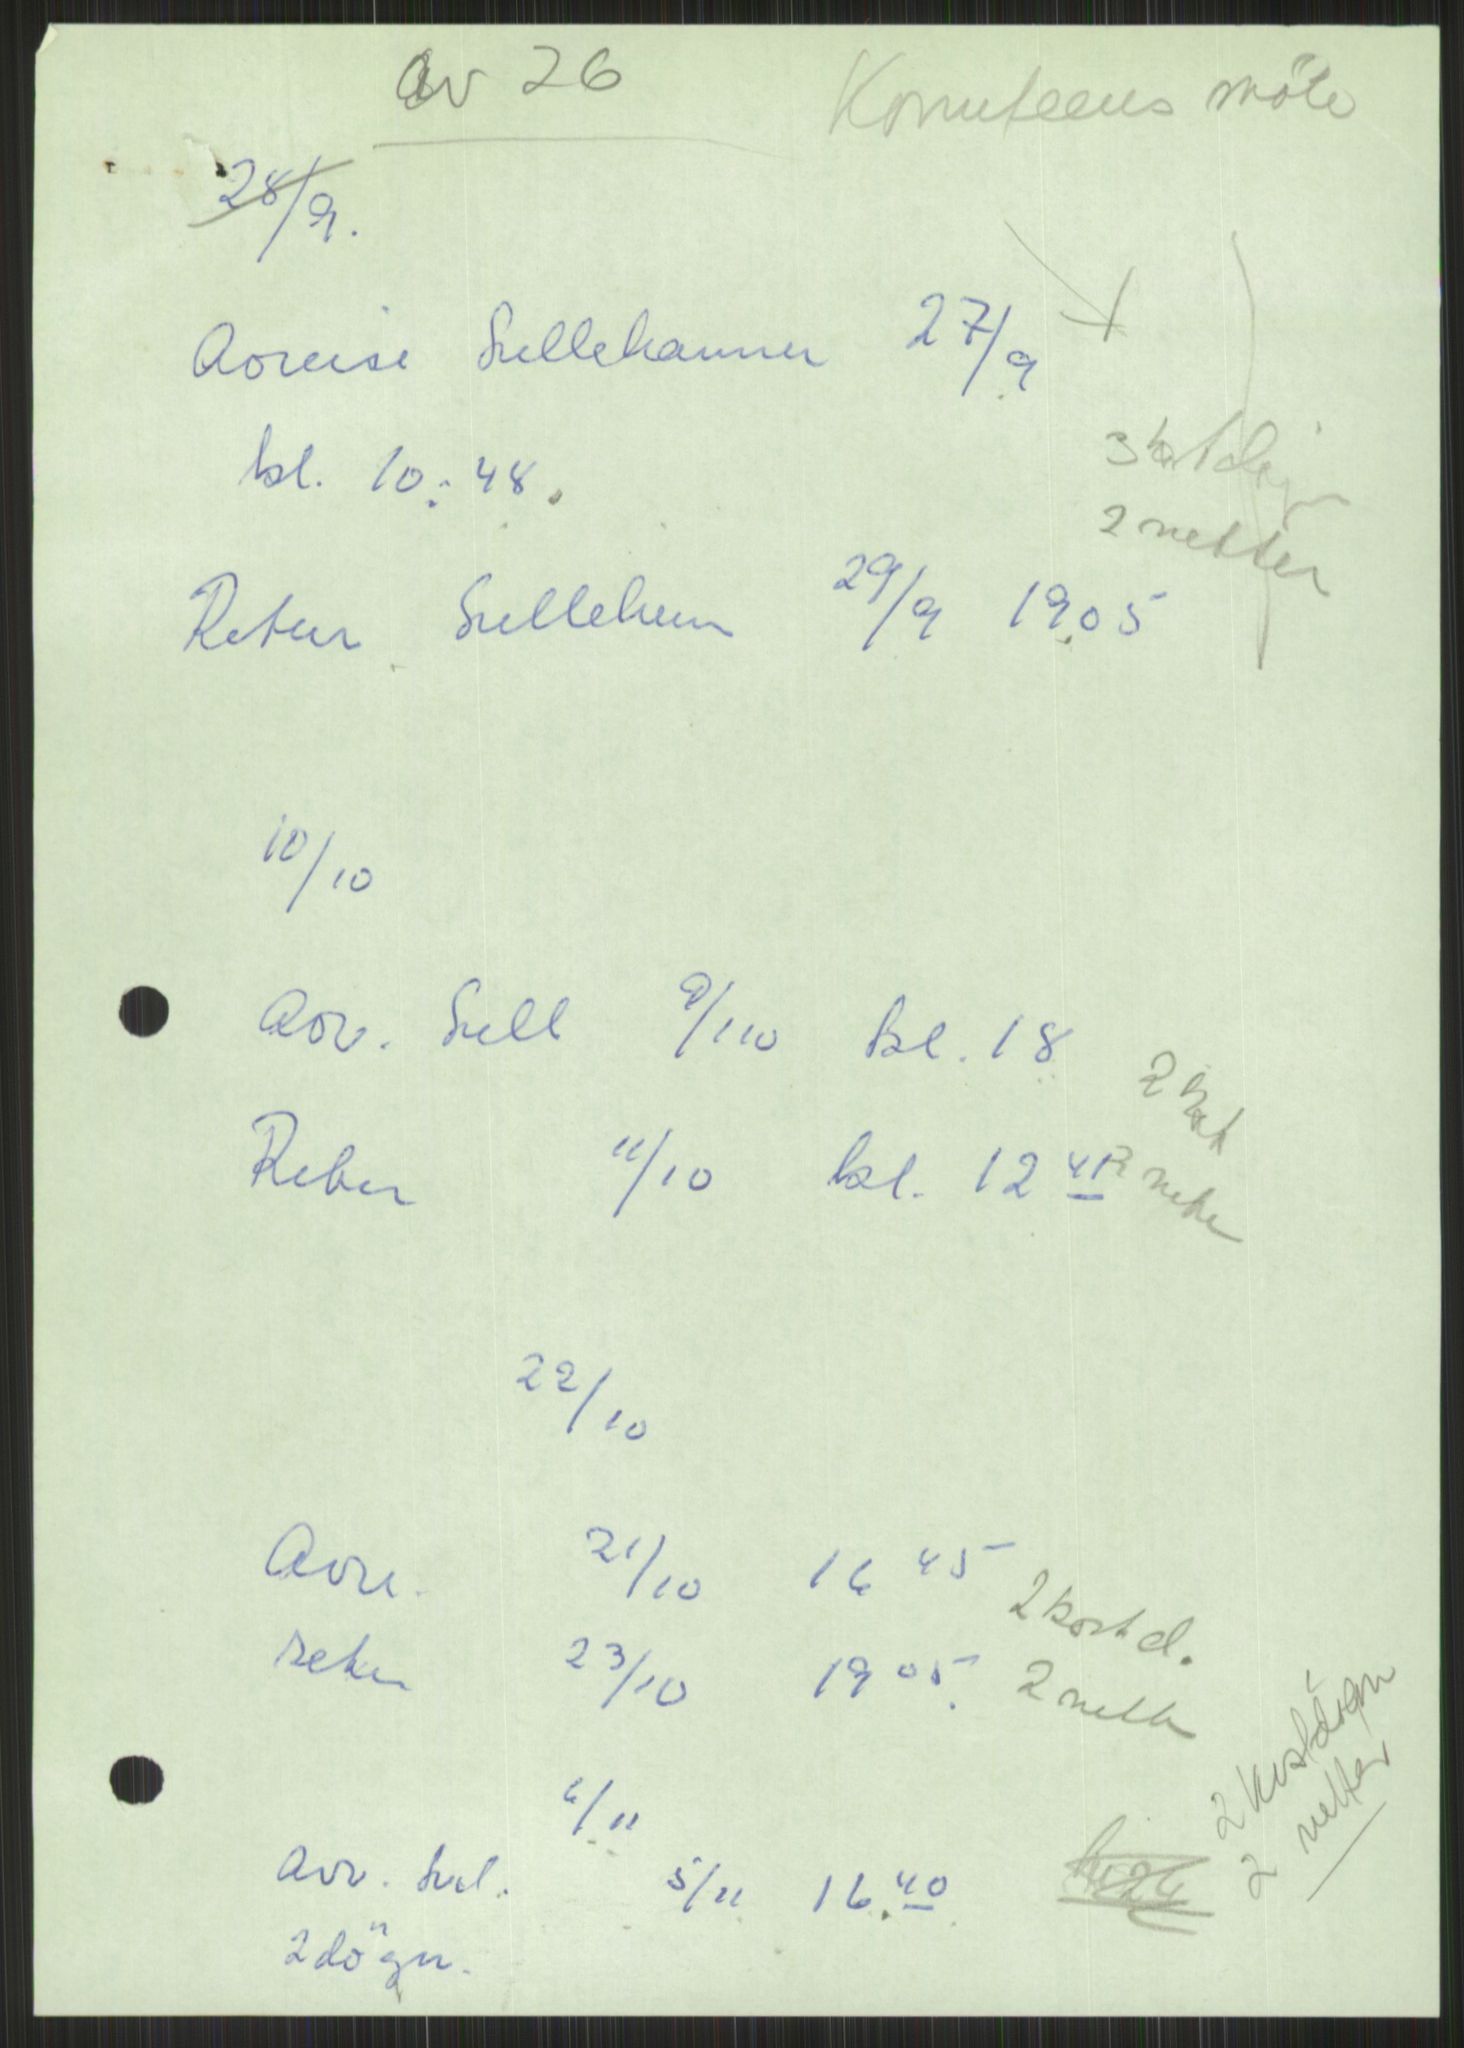 av 26
Komiteens möte
28/9.
Avreise Lillehammer 27/9
kl. 10:48.
3 kostdøgn
2 netter
Retur Lilleham 29/9 19.05
10/10
Avr. Lill 9/10 kl. 18
2 kost
Retur 11/10 kl. 12
2 nette
22/10
Avre. 21/10 16 45
2 kost d.
retur 23/10 19 05.
2 nette
2 kostdögn
2 netter
6/11
Avr. Lil. 5/11 16.40
2 dögn.